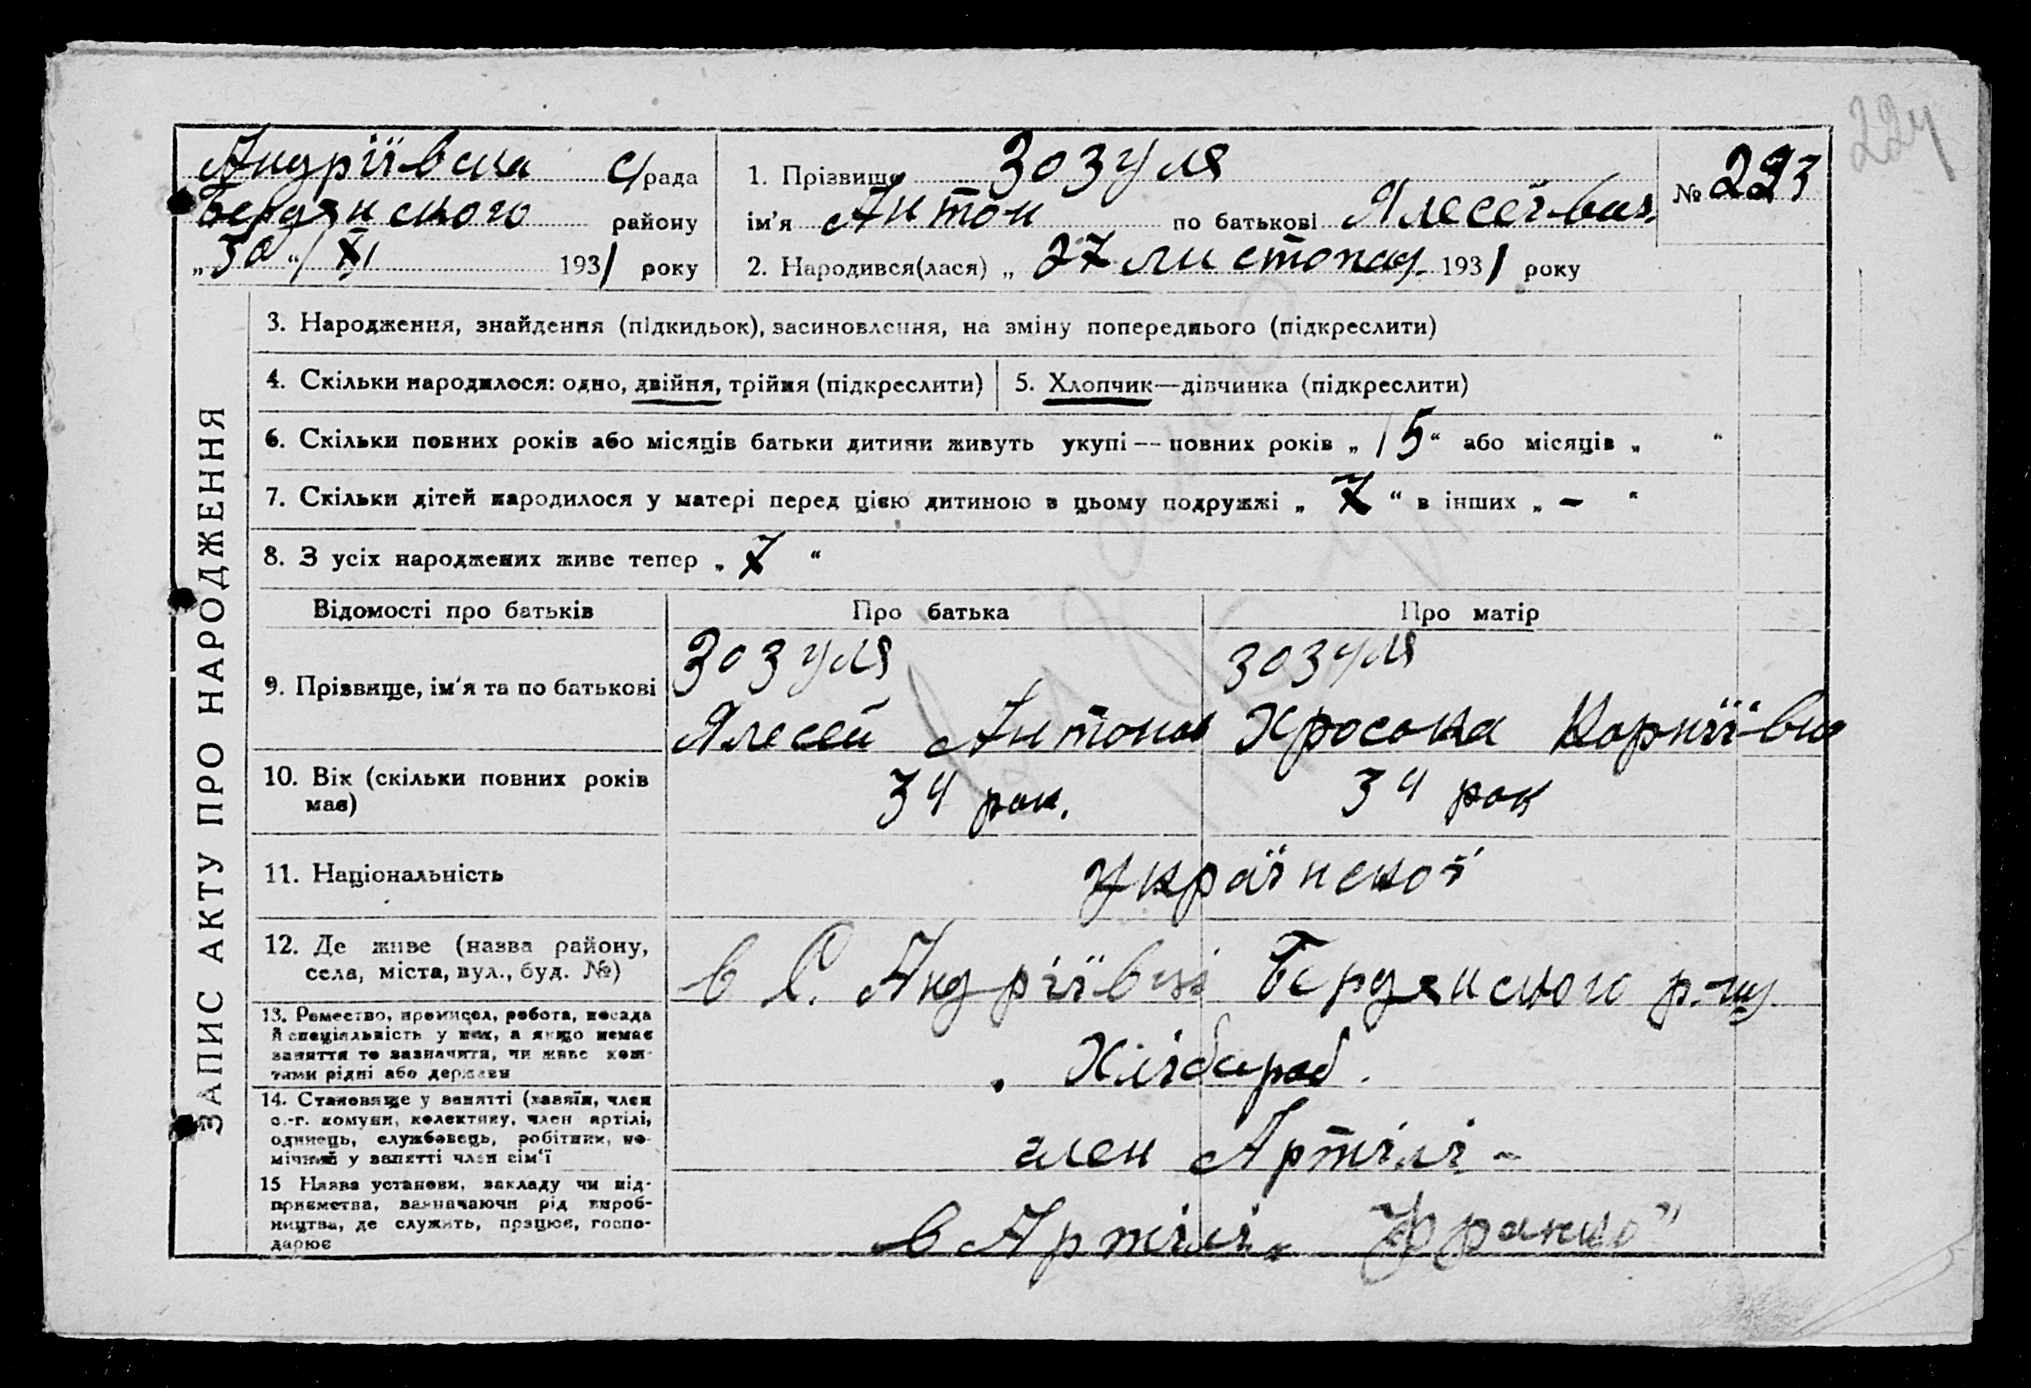 224
Андріївська с/рада
Бердянського району
„30“/XI 1931 року
1. Прізвище Зозуля
ім'я Антон по батькові Алесеївич
2. Народився(лася) „ 27 листопад. 1931 року
№ 223
ЗАПИС АКТУ ПРО НАРОДЖЕННЯ
3. Народження, знайдення (підкидьок), засиновлення, на зміну попереднього (підкреслити)
4. Скільки народилося: одно, двійня, трійня (підкреслити)
5. Хлопчик—дівчинка (підкреслити)
6. Скільки повних років або місяців батьки дитини живуть укупі — повних років „ 15 “ або місяців „ “
7. Скільки дітей народилося у матері перед цією дитиною в цьому подружжі „ 7 “ в інших „ – “
8. З усіх народжених живе тепер „ 7 “
Відомості про батьків Про батька Про матір
9. Прізвище, ім'я та по батькові
Зозуля
Алесей Антонов
Зозуля
Корніївна
10. Вік (скільки повних років
має)
34 рок.
34 рок
11. Національність
Української
12. Де живе (назва району,
села, міста, вул., буд. №)
в С. Андріївці Бердянського р-ну
13. Ремество, промисел, робота, посада
й спеціальність у них, а якщо немає
заняття то зазначити, чи живе кош-
тами рідні або держави
Хлібороб.
14. Становище у занятті (хазяїн, член
с.-г. комуни, колективу, член артілі,
одинець, службовець, робітник, по-
мічний у занятті член сім'ї
член Артілі -
15 Назва установи, закладу чи під-
приємства, зазначаючи рід вироб-
ництва, де служить, працює, госпо-
дарює
в Артілі „ Франко"